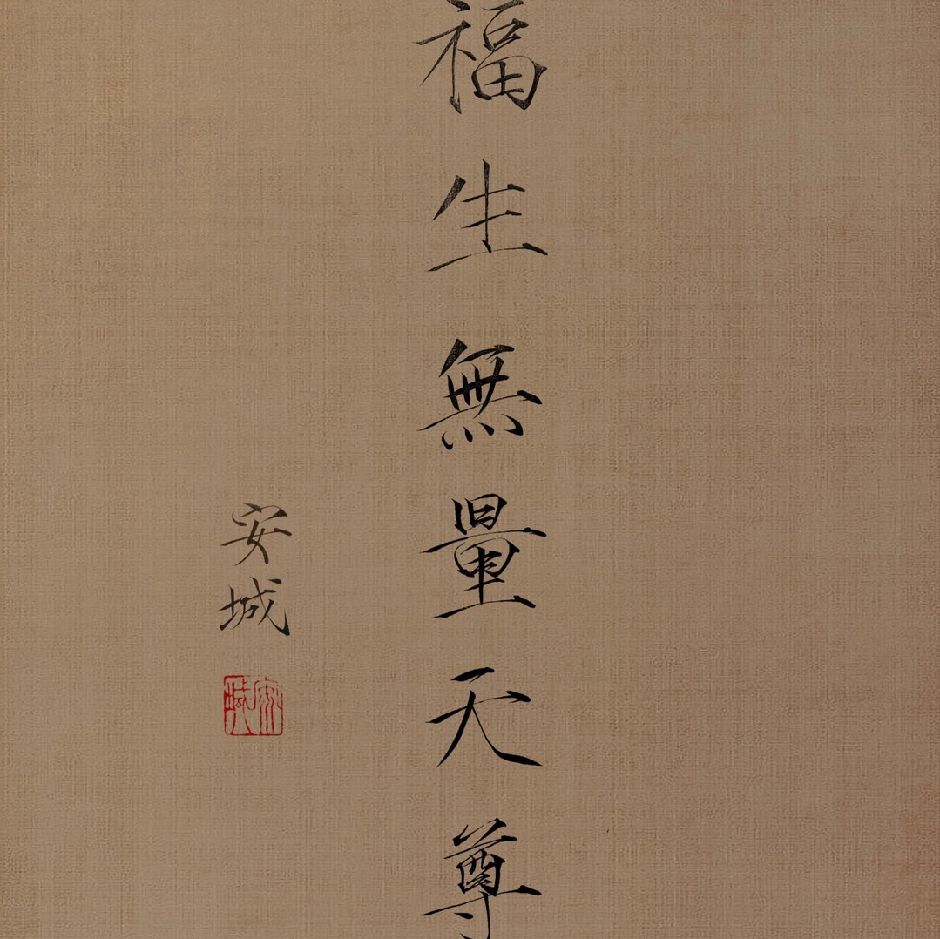 福生無量天尊
安城